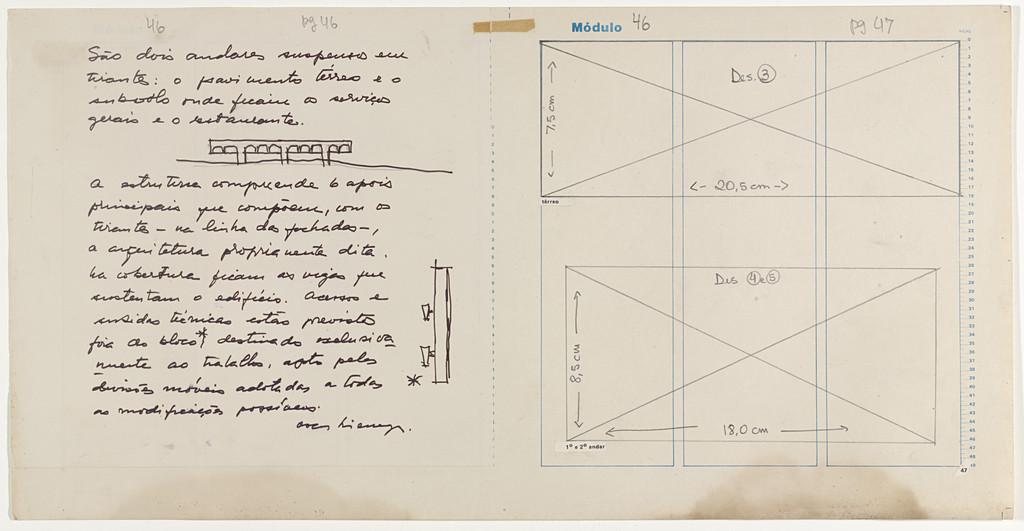 46
pg 46
São dois andares suspensos em
tirantes: o pavimento térreo e o
subsolo onde ficam os serviços
gerais e o restaurante.
A estrutura compreende 6 apoios
principais que compõem, com os
tirantes – na linha das fachadas –,
a arquitetura propriamente dita.
Na cobertura ficam as vigas que
sustentam o edifício. Acessos e
subidas técnicas estão previstos
fora do bloco* destinado exclusiva
mente ao trabalho, apto pelas
divisões móveis adotadas a todas
as modificações possíveis.
*
Módulo 46
pg 47
Des. 3
7,5 cm
<- 20,5 cm ->
térreo
Des 4 e 5
8,5 cm
18,0 cm
1º e 2º andar
47